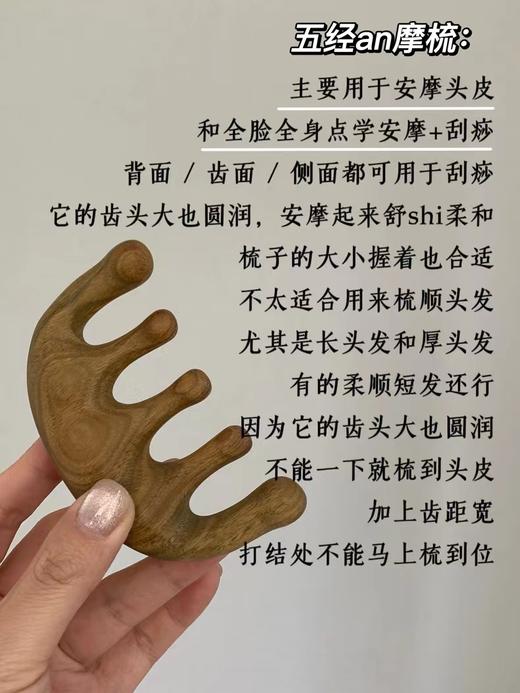 五经an摩梳：
主要用于安摩头皮
和全脸全身点学安摩+刮痧
背面 / 齿面 / 侧面都可用于刮痧
它的齿头大也圆润，安摩起来舒shi柔和
梳子的大小握着也合适
不太适合用来梳顺头发
尤其是长头发和厚头发
有的柔顺短发还行
因为它的齿头大也圆润
不能一下就梳到头皮
加上齿距宽
打结处不能马上梳到位